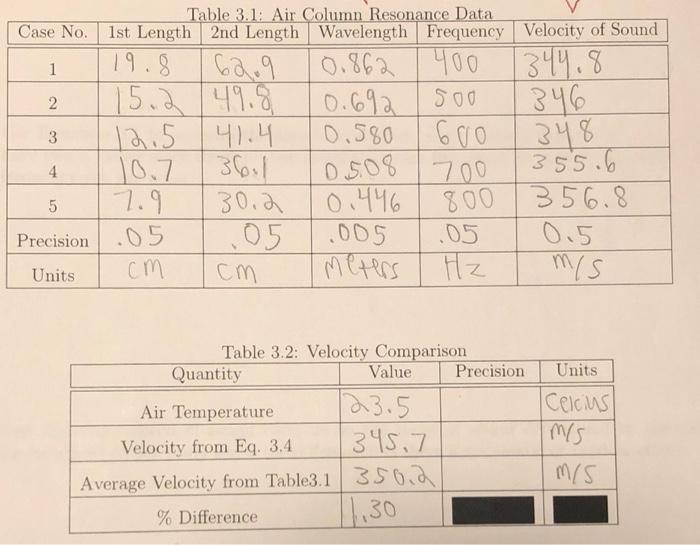 Table 3.1: Air Column Resonance Data
Case No. 1st Length 2nd Length Wavelength Frequency Velocity of Sound
1 19.8 62.9 0.862 400 344.8
2 15.2 49.8 0.692 500 346
3 12.5 41.4 0.580 600 348
4 10.7 36.1 0.508 700 355.6
5 7.9 30.2 0.446 800 356.8
Precision .05 .05 .005 .05 0.5
Units cm cm Meters Hz m/s
Table 3.2: Velocity Comparison
Quantity Value Precision Units
Air Temperature 23.5 Celcius
Velocity from Eq. 3.4 345.7 m/s
Average Velocity from Table3.1 350.2 m/s
% Difference 1.30